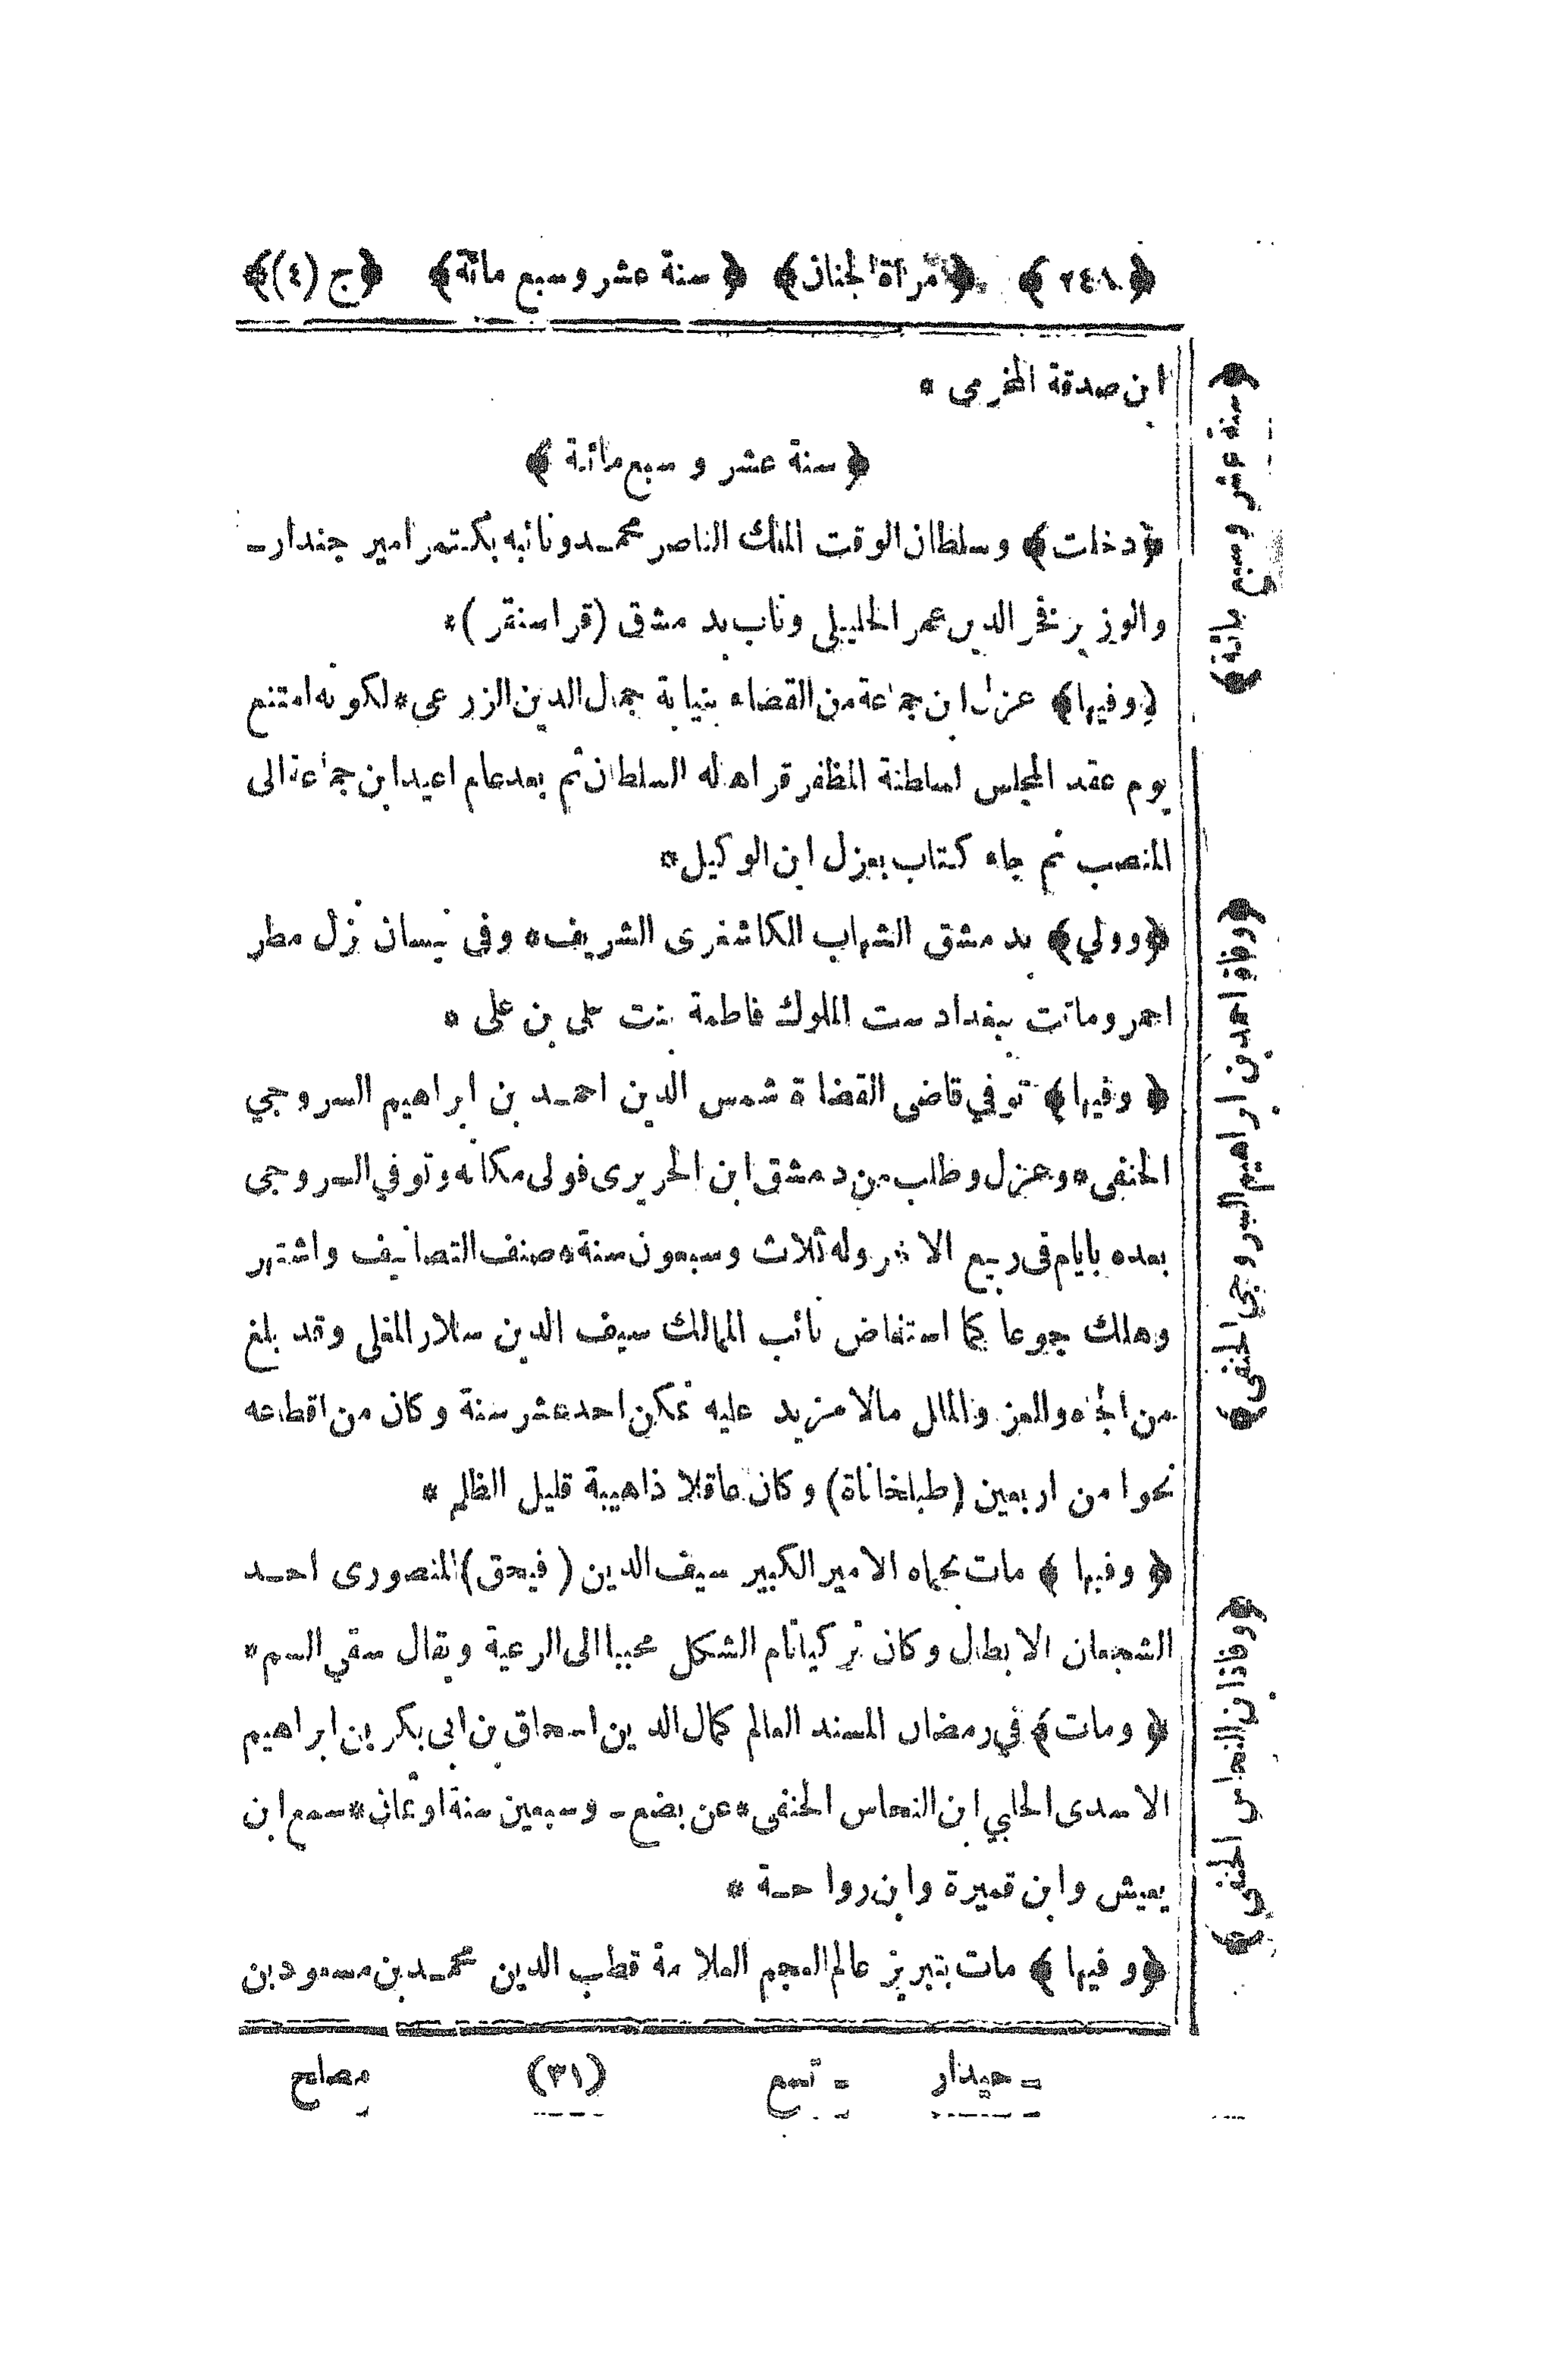 ﴿٢٤٨﴾ ﴿مرآة الجنان﴾ ﴿سنة عشر وسبع مائة﴾ ﴿ج (٤)﴾
ابن صدقة المخرمى *
﴿ سنة عشر و سبع مائة ﴾
﴿دخلت﴾ وسلطان الوقت الملك الناصر محمد ونائبه بكتمر امير جندار ـ
والوزير فخر الدين عمر الخليلى وناب بدمشق (قراسنقر)*
﴿وفيها﴾ عزل ابن جماعة من القضاء بنيابة جمال الدين الزرعى * لكونه امتنع
يوم عقد المجلس لسلطنة المظفر قراهاله السلطان ثم بعد عام اعيد ابن جماعة الى
المنصب ثم جاء كتاب بعزل ابن الوكيل*
﴿وولي﴾ بدمشق الشهاب الكاشغرى الشريف* وفى نيسان نزل مطر
احمر وماتت ببغداد ست الملوك فاطمة بنت على بن على *
﴿ وفيها﴾ توفي قاضى القضاة شمس الدين احمد بن ابراهيم السروجي
الحنفى* وعزل وطلب من دمشق ابن الحريرى فولى مكانه وتوفي السروجى
بعده بايام فى ربيع الاخر وله ثلاث وسبعون سنة* صنف التصانيف واشتهر
وهلك جوعا كما استفاض نائب الممالك سيف الدين سلار المغلى وقد بلغ
من الجاه والعز والمال مالا مزيد عليه تمكن احد عشر سنة وكان من اقطاعه
نحوا من اربعين (طبلخاناة) وكان عاقلا ذاهيبة قليل الظلم *
﴿ وفيها ﴾ مات بحماه الامير الكبير سيف الدين (فيحق) المنصورى احد
الشجعان الابطال وكان تركيا تام الشكل محببا الى الرعية ويقال سقي السم*
﴿ ومات﴾ في رمضان المسند العالم كمال الدين اسحاق بن ابى بكر بن ابراهيم
الاسدى الحلبي ابن النحاس الحنفى* عن بضع ـ وسبعين سنة او ثمان* سمع ابن
يعيش وابن قميرة وابن رواحة *
﴿و فيها ﴾ مات بتبريز عالم العجم العلامة قطب الدين محمد بن مسعود بن
ـ حيدار
ـ تسع
(٣١)
مصلح
﴿سنة عشر وسبع مائة﴾
﴿وفاة احمد بن ابراهيم السروجى الحنفى﴾
﴿وفاة ابن النحاس الحنفى﴾